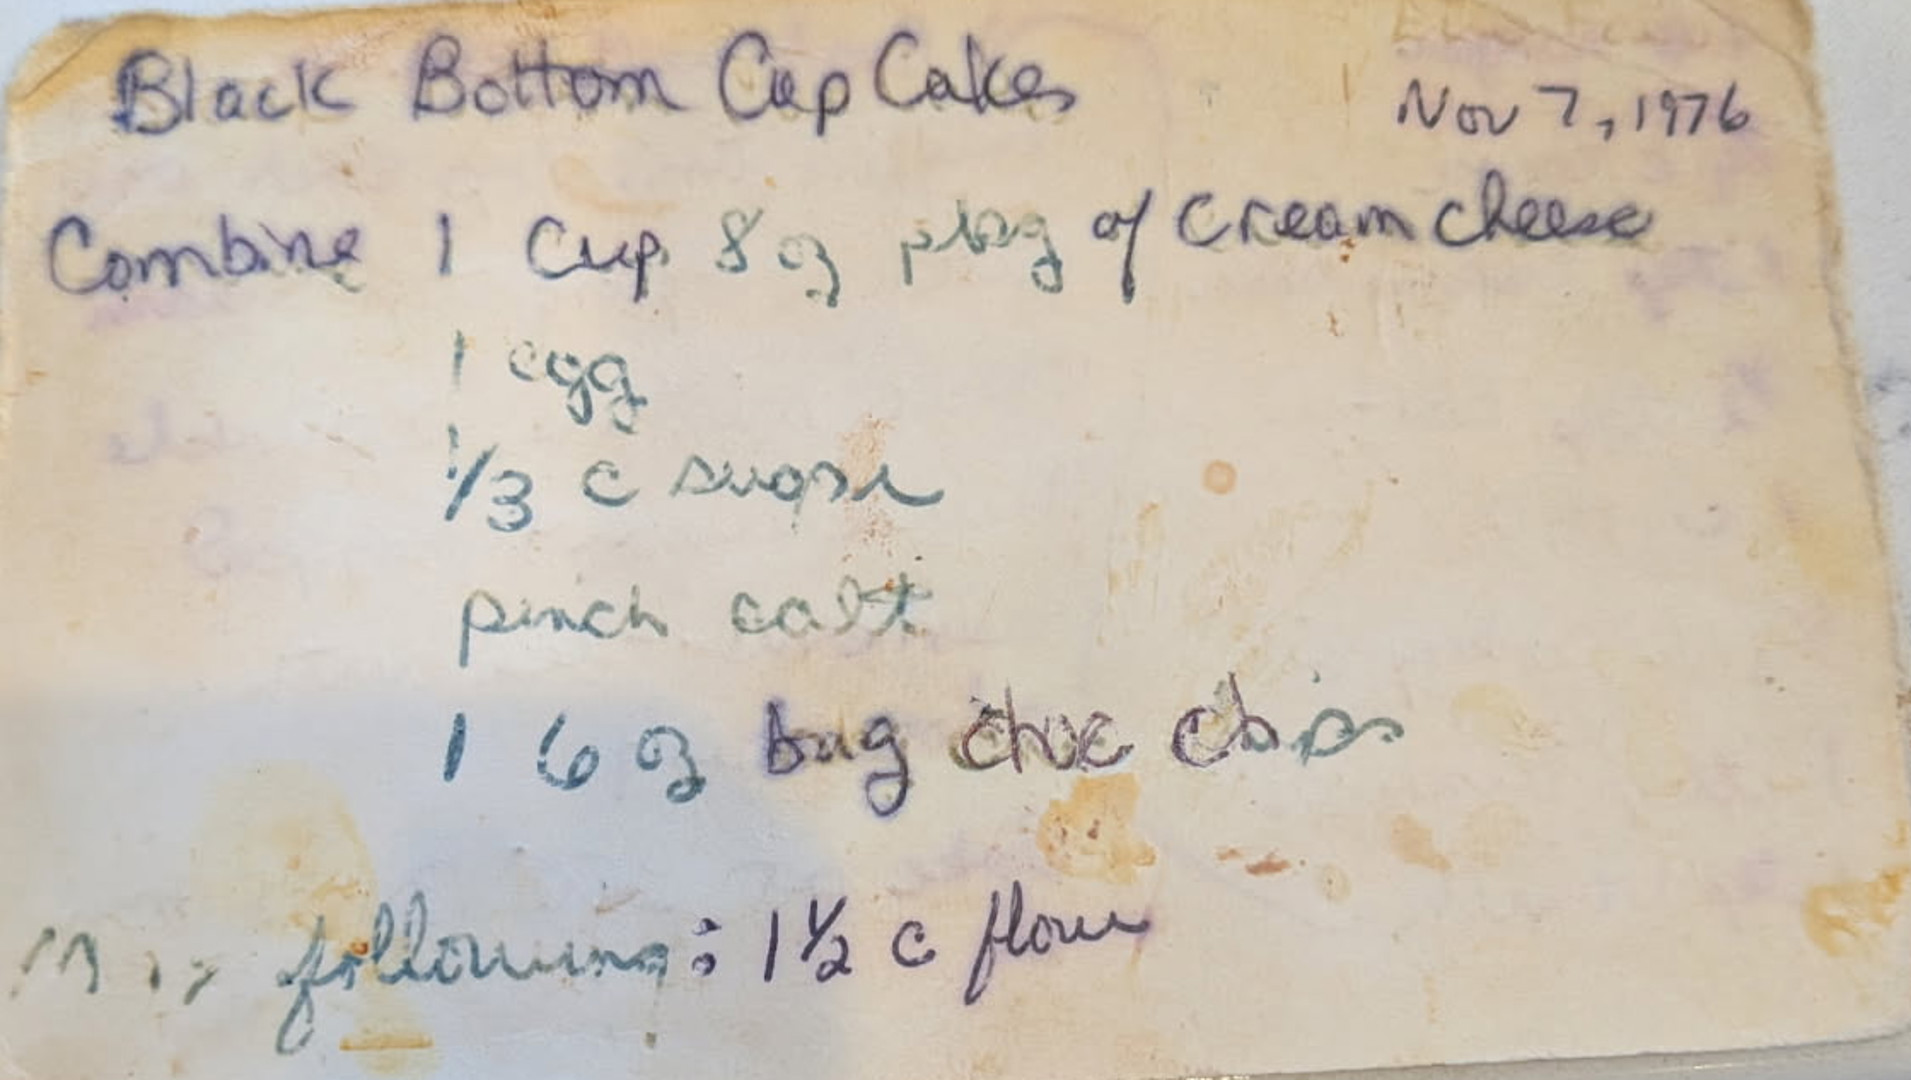 Black Bottom Cup Cakes
Nov 7, 1976
Combine 1 Cup 8 oz pkg of Cream cheese
1 egg
1/3 c sugar
pinch salt
1 6 oz bag choc chips
Mix following: 1 1/2 c flour